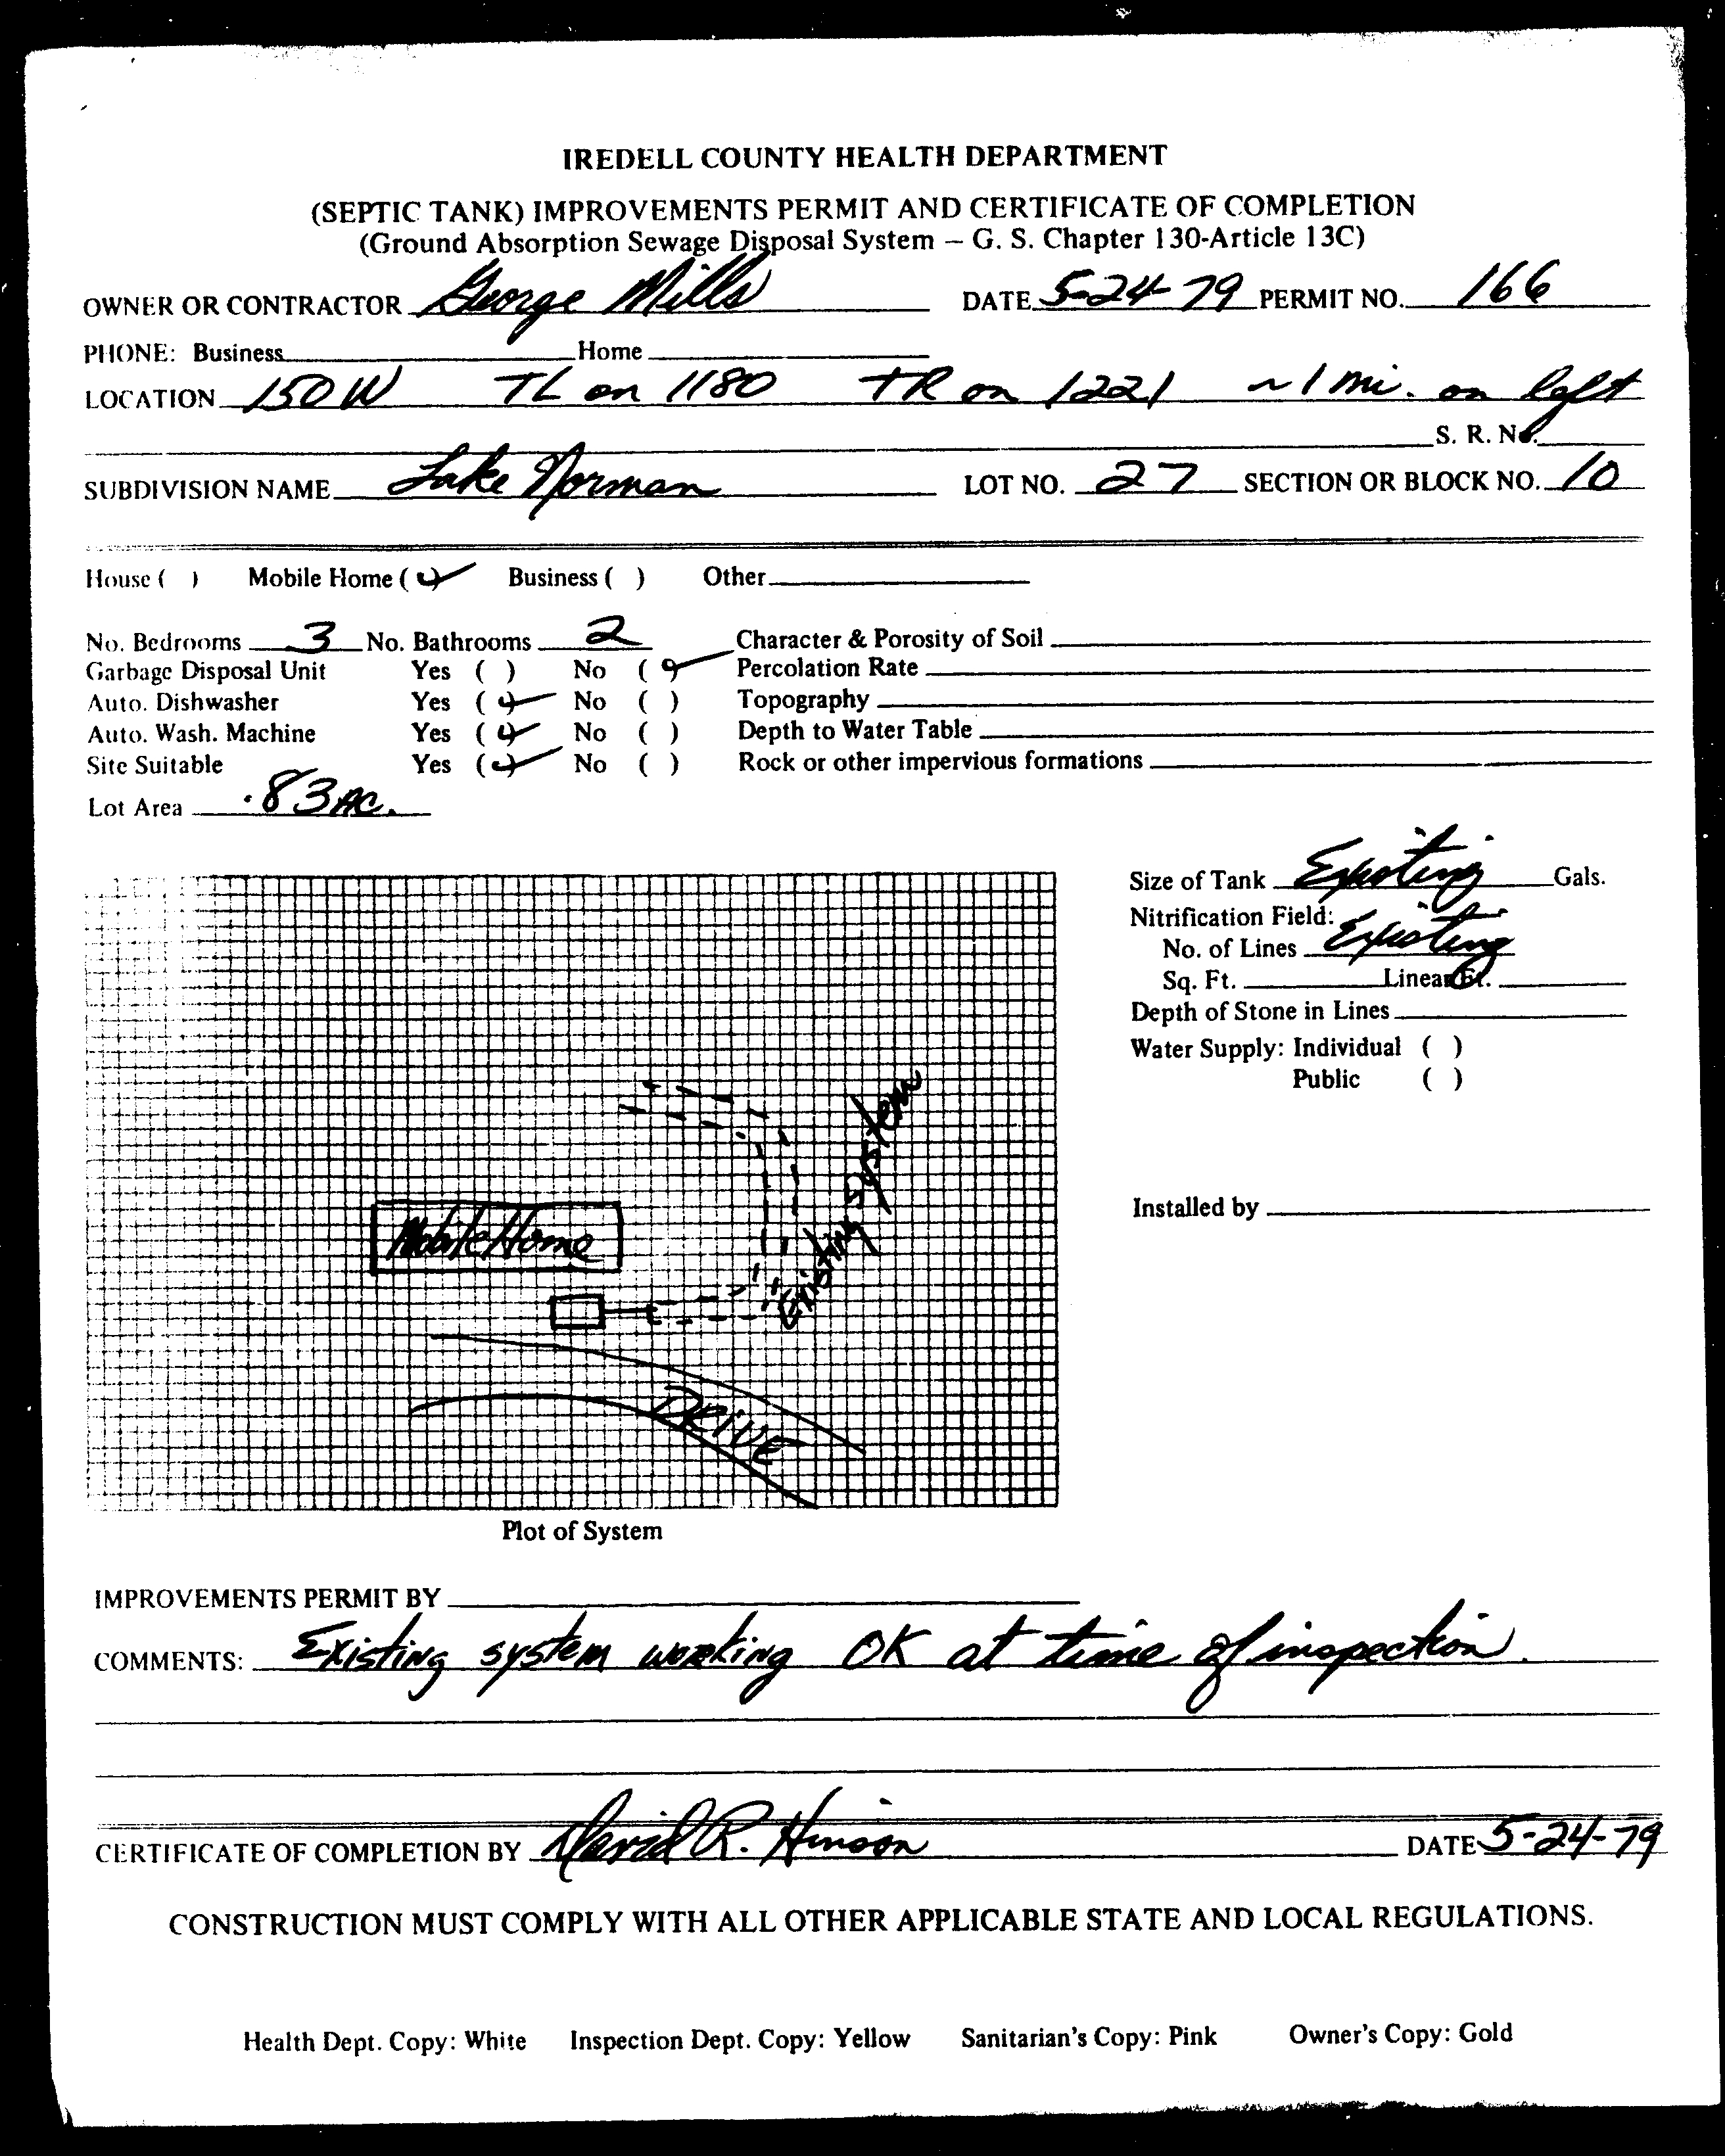 IREDELL COUNTY HEALTH DEPARTMENT
(SEPTIC TANK) IMPROVEMENTS PERMIT AND CERTIFICATE OF COMPLETION
(Ground Absorption Sewage Disposal System – G. S. Chapter 130-Article 13C)
OWNER OR CONTRACTOR George Mills DATE 5-24-79 PERMIT NO. 166
PHONE: Business Home
LOCATION 150 W TL on 1180 TR on 1221 ~ 1 mi. on left
S. R. No.
SUBDIVISION NAME Lake Norman LOT NO. 27 SECTION OR BLOCK NO. 10
House ( ) Mobile Home (✓) Business ( ) Other
No. Bedrooms 3 No. Bathrooms 2 Character & Porosity of Soil
Garbage Disposal Unit Yes ( ) No (✓) Percolation Rate
Auto. Dishwasher Yes (✓) No ( ) Topography
Auto. Wash. Machine Yes (✓) No ( ) Depth to Water Table
Site Suitable Yes (✓) No ( ) Rock or other impervious formations
Lot Area .83 AC.
Size of Tank Existing Gals.
Nitrification Field:
No. of Lines Existing
Sq. Ft. Linear Ft.
Depth of Stone in Lines
Water Supply: Individual ( )
Public ( )
Installed by
Existing System
Mobile Home
DRIVE
Plot of System
IMPROVEMENTS PERMIT BY
COMMENTS: Existing system working OK at time of inspection.
CERTIFICATE OF COMPLETION BY David R. Hinson DATE 5-24-79
CONSTRUCTION MUST COMPLY WITH ALL OTHER APPLICABLE STATE AND LOCAL REGULATIONS.
Health Dept. Copy: White Inspection Dept. Copy: Yellow Sanitarian's Copy: Pink Owner's Copy: Gold